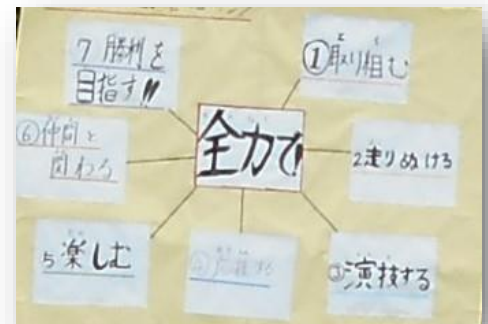 全力で
①取り組む
2走りぬける
③演技する
④応援する
5楽しむ
⑥仲間と
関わる
7勝利を
目指す!!